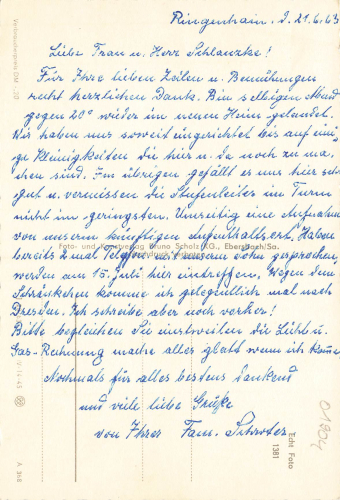 Ringenhain, d. 21.6.63
Liebe Frau u. Herr Schlanzke!
Für Ihre lieben Zeilen u. Bemühungen
recht herzlichen Dank. Bin selbigen Abend
gegen 20° wieder im neuen Heim gelandet.
Wir haben uns soweit eingerichtet bis auf eini-
ge Kleinigkeiten die hier u. da noch zu ma-
chen sind. Im übrigen gefällt es uns hier sehr
gut u. vermissen die Stufenleiter im Turm
nicht im geringsten. Umseitig eine Aufnahme
von unserem künftigen Aufenthaltsort. Haben
Foto- und Kunstverlag Bruno Scholz KG., Ebersbach/Sa.
bereits 2 mal Telefon mit unserem Sohn gesprochen,
werden am 15. Juli hier eintreffen. Wegen dem
Schränkchen komme ich gelegentlich mal nach
Dresden. Ich schreibe aber noch vorher!
Bitte begleichen Sie einstweilen die Licht u.
Gas-Rechnung mache alles glatt wenn ich komme
Nochmals für alles bestens dankend
und viele liebe Grüße
von Ihrer Fam. Schroter
Echt Foto
1381
01804
A 318